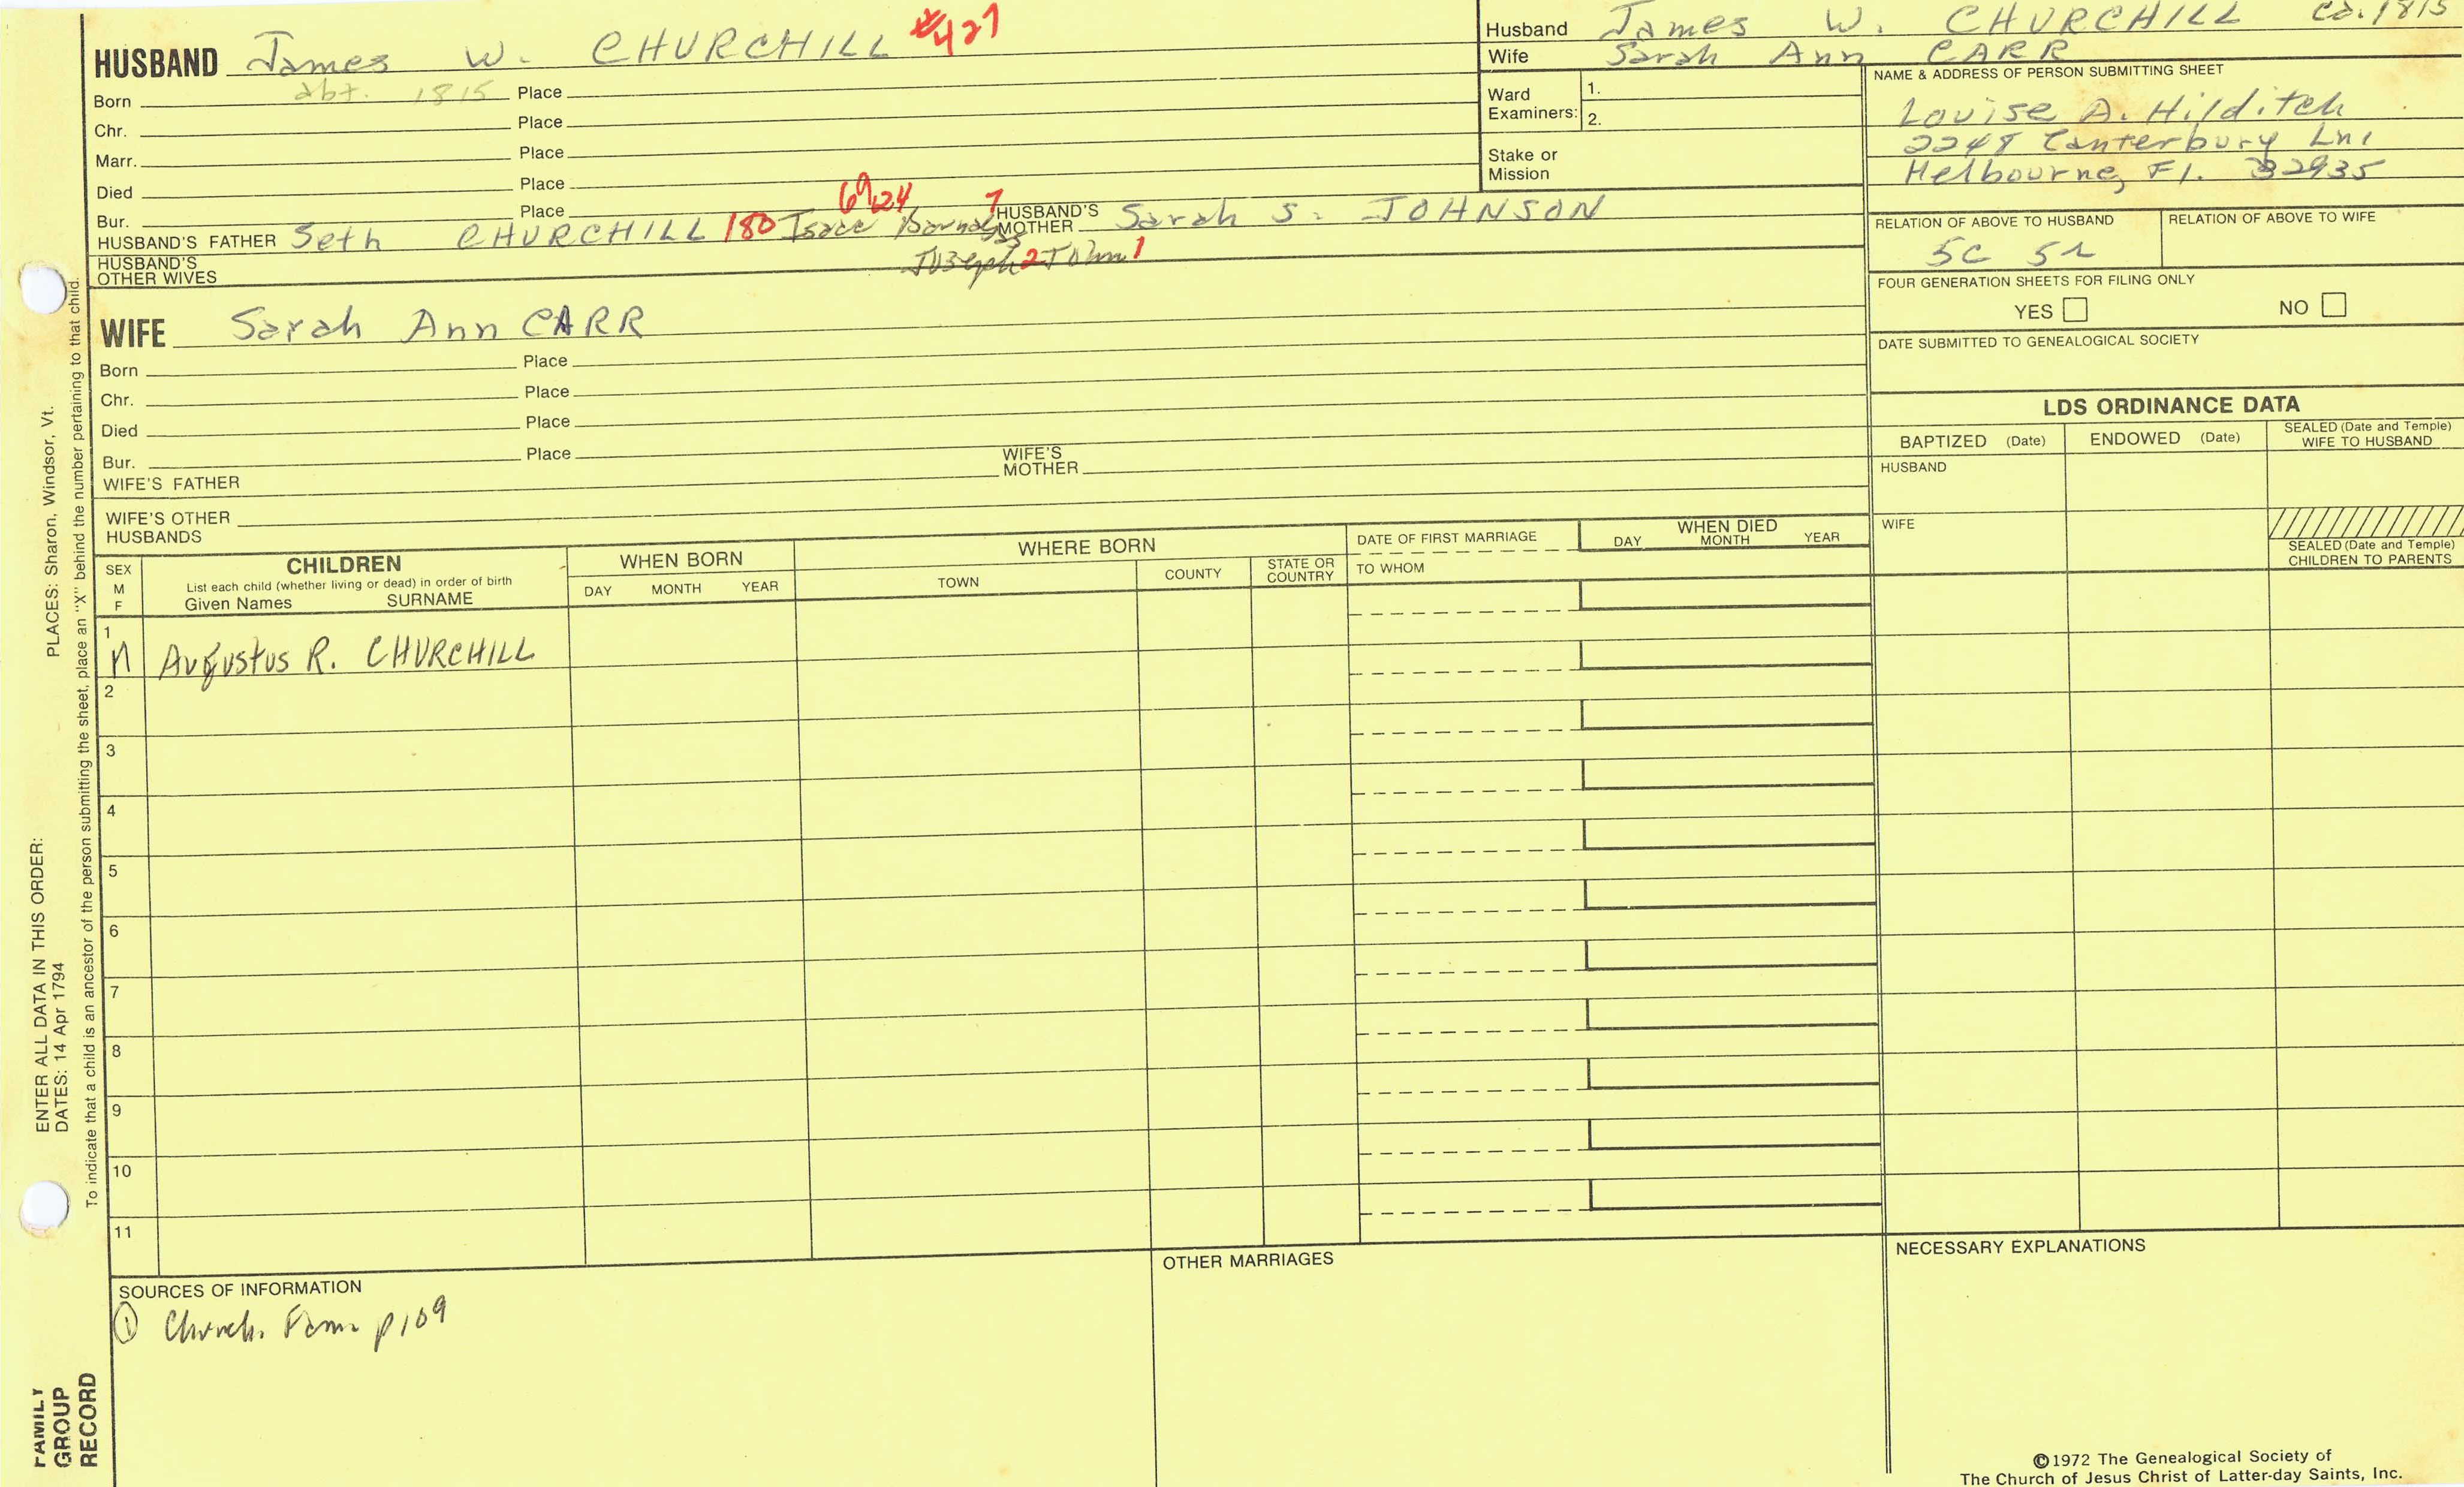 HUSBAND James W. CHURCHILL #427
Born abt. 1815 Place
Chr. Place
Marr. Place
Died Place
Bur. Place
69 24 7
HUSBAND'S FATHER Seth CHURCHILL 180 Isaac HUSBAND'S MOTHER Sarah S. JOHNSON
Joseph 2 John 1
HUSBAND'S OTHER WIVES
Husband James W. CHURCHILL Ca. 1815
Wife Sarah Ann CARR
Ward Examiners: 1.
2.
Stake or Mission
NAME & ADDRESS OF PERSON SUBMITTING SHEET
Louise A. Hilditch
2248 Canterbury Ln
Melbourne, Fl. 32935
RELATION OF ABOVE TO HUSBAND RELATION OF ABOVE TO WIFE
5C 5r
FOUR GENERATION SHEETS FOR FILING ONLY
YES NO
DATE SUBMITTED TO GENEALOGICAL SOCIETY
WIFE Sarah Ann CARR
Born Place
Chr. Place
Died Place
Bur. Place
WIFE'S FATHER WIFE'S MOTHER
WIFE'S OTHER HUSBANDS
LDS ORDINANCE DATA
BAPTIZED (Date) ENDOWED (Date) SEALED (Date and Temple) WIFE TO HUSBAND
HUSBAND
WIFE
SEALED (Date and Temple) CHILDREN TO PARENTS
SEX M F
CHILDREN
List each child (whether living or dead) in order of birth
Given Names SURNAME
WHEN BORN
DAY MONTH YEAR
WHERE BORN
TOWN COUNTY STATE OR COUNTRY
DATE OF FIRST MARRIAGE
TO WHOM
WHEN DIED
DAY MONTH YEAR
1
M Augustus R. CHURCHILL
2
3
4
5
6
7
8
9
10
11
SOURCES OF INFORMATION
① Church. Fam. p109
OTHER MARRIAGES
NECESSARY EXPLANATIONS
©1972 The Genealogical Society of
The Church of Jesus Christ of Latter-day Saints, Inc.
FAMILY
GROUP
RECORD
ENTER ALL DATA IN THIS ORDER:
DATES: 14 Apr 1794
PLACES: Sharon, Windsor, Vt.
To indicate that a child is an ancestor of the person submitting the sheet, place an "X" behind the number pertaining to that child.